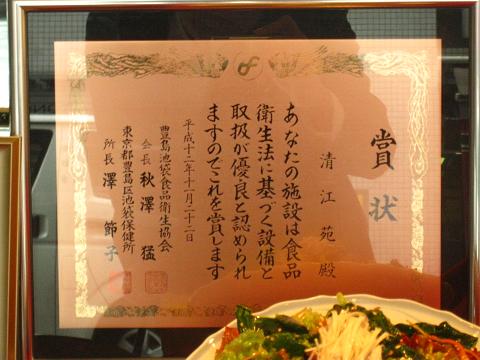 賞状
清江苑殿
あなたの施設は食品
衛生法に基づく設備と
取扱が優良と認められ
ますのでこれを賞します
平成十二年十一月二十二日
豊島池袋食品衛生協会
会長 秋澤 猛
東京都豊島区池袋保健所
所長 澤 節子